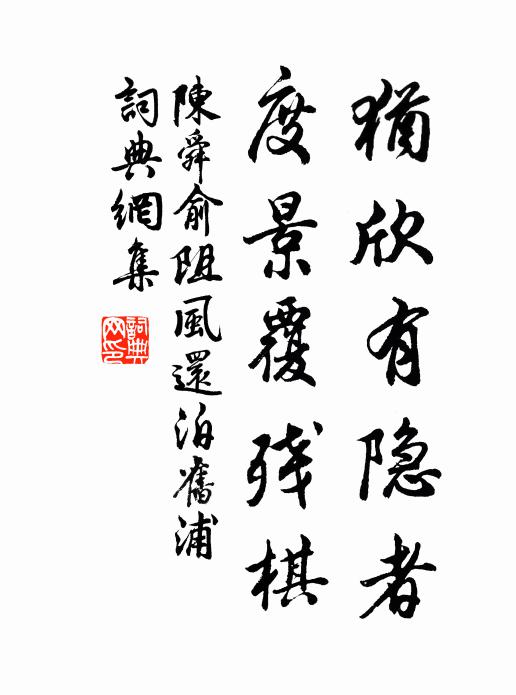 猶欣有隐者
度景覆残棋
陳舜俞阻風還泊舊浦
詞典網集
詞典
网印